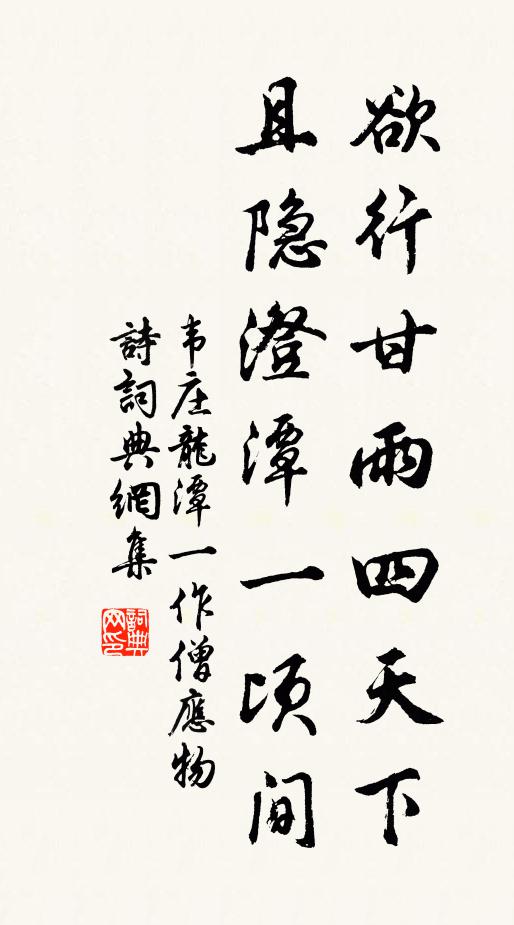 欲行甘雨四天下
且隐澄潭一顷间
韦庄龍潭一作僧應物
詩詞典網集
詞典
网印